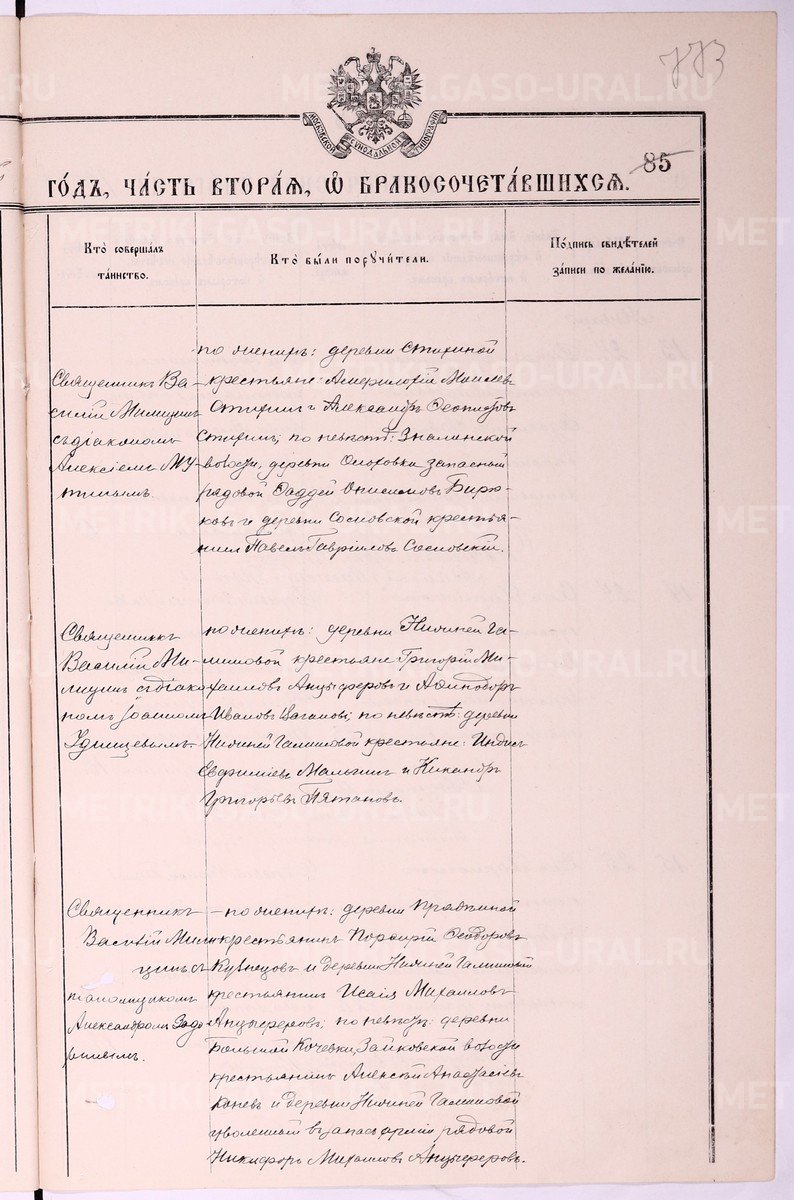 773
МОСКОВСКОЙ СѴНОДАЛЬНОЙ ТИПОГРАФІИ
85
ГО́ДЪ, ЧА́СТЬ ВТОРА́Я, Ѿ БРАКОСОЧЕТА́ВШИХСЯ.
Кто̀ соверша́лъ
та́инство.
Кто̀ бы́ли поручи́тели.
По́дпись свидѣ́телей
за́писи по жела́нїю.
Священникъ Ва-
силій Милицинъ
съ діакономъ
Алексіемъ Му
тинымъ
по женихѣ: деревни Стихиной
крестьяне:
Стихинъ и Александръ
Стихинъ; по невѣстѣ: Знаменской
волости, деревни Ольховки запасный
рядовой Фаддей Онисимовъ Бирю-
ковъ и деревни Сосновской крестья-
нинъ Павелъ Гавріиловъ Сосновскій.
Священникъ
Василій Ми-
лицинъ съ діако
номъ Іоанномъ
Удинцевымъ
по женихѣ: деревни Нижней Га-
лишовой крестьяне Григорій Ми-
хаиловъ Анцыферовъ и
Ивановъ Ваганов; по невѣстѣ: деревни
Нижней Галишовой крестьяне:
Евфиміевъ Малыгинъ и Никандръ
Григорьевъ Пятановъ.
Священникъ
Василій Мили
цинъ съ
псаломщикомъ
Александромъ Задо
ринымъ.
по женихѣ: деревни
крестьянинъ Порфирій Феодоровъ
Кузнецовъ и деревни Нижней Галишовой
крестьянинъ Исаія Михаиловъ
Анцыферовъ; по невѣстѣ: деревни
Большой Кочевки, Зайковской волости
крестьянинъ Алексѣй Анастасіевъ
Коневъ и деревни Нижней Галишовой
уволенный въ запасъ арміи рядовой
Никифоръ Михаиловъ Анцыферовъ.
METRIKI.GASO-URAL.RU